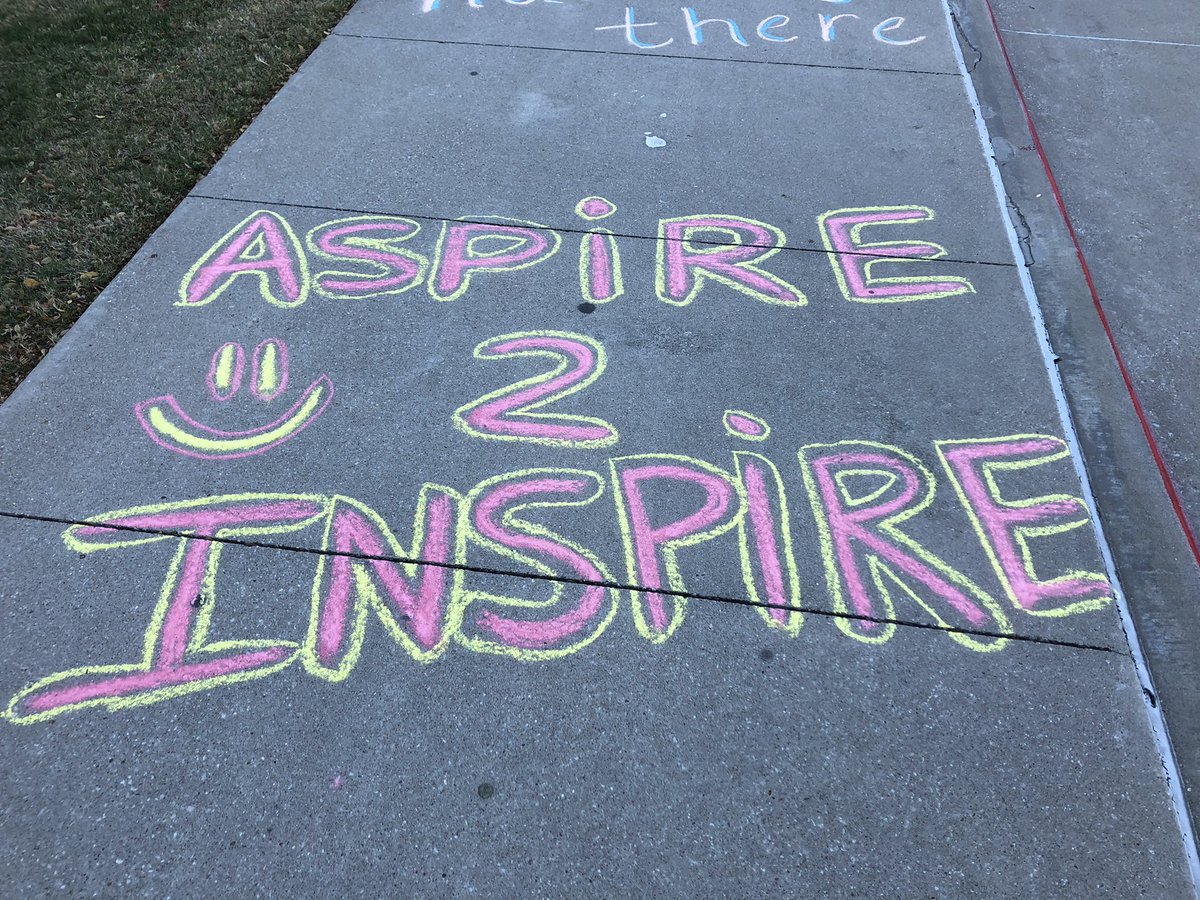 there
ASPiRE
2
INSPiRE